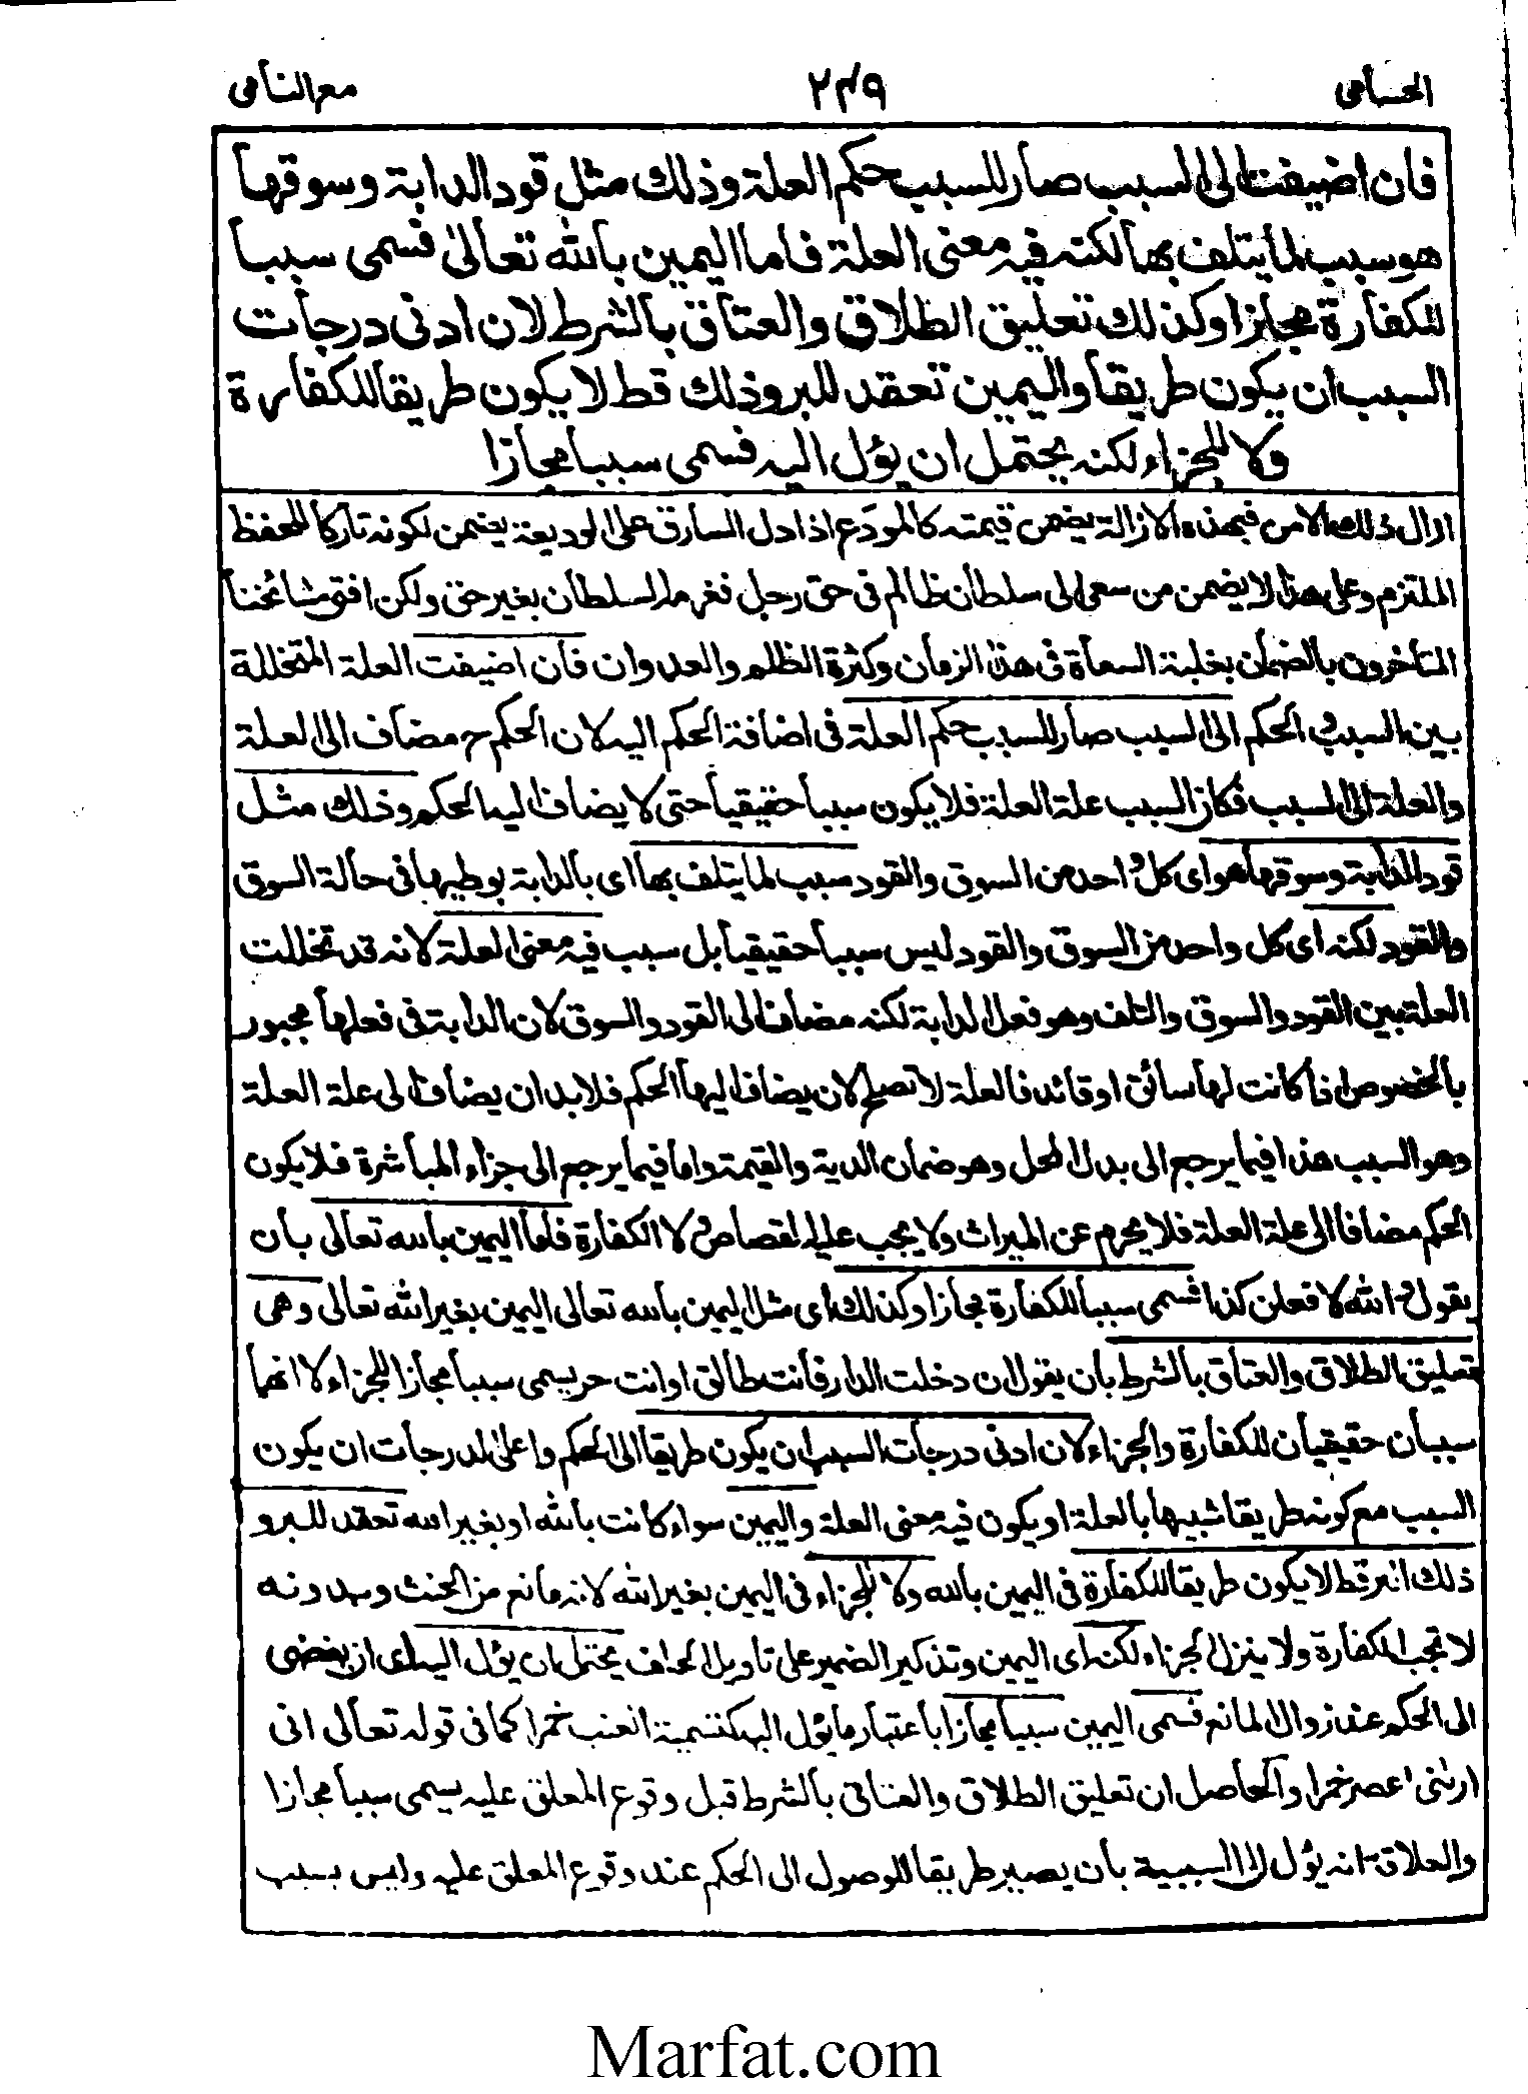 الحسامي ٢٤٩ مع النامي
فان اضيفت الى السبب صار للسبب حكم العلة وذلك مثل قود الدابة وسوقها
هو سبب لما يتلف بها لكنه فيه معنى العلة فاما اليمين بالله تعالىٰ فسمى سببا
للكفارة مجازا وكذلك تعليق الطلاق والعتاق بالشرط لان ادنى درجات
السبب ان يكون طريقا واليمين تعقد للبر وذلك قط لا يكون طريقا للكفارة
ولا للجزاء لكنه يحتمل ان يؤل اليه فسمى سببا مجازا
ازال ذلك الامن فبهذه الازالة يضمن قيمته كالمودَع اذا دل السارق على الوديعة يضمن لكونه تاركا للحفظ
الملتزم وعلى هذا لا يضمن من سعى الى سلطان ظالم فى حق رجل فغرمه السلطان بغير حق ولكن افتى مشائخنا
المتاخرون بالضمان بغلبة السعاة فى هذا الزمان وكثرة الظلم والعدوان فان اضيفت العلة المتخللة
بين السبب و الحكم الى السبب صار للسبب حكم العلة فى اضافة الحكم اليه لان الحكم ح مضاف الى العلة
والعلة الى السبب فكان السبب علة العلة فلا يكون سببا حقيقيا حتى لا يضاف اليه الحكم وذلك مثل
قود الدابة وسوقها هو اى كل واحد من السوق والقود سبب لما يتلف بها اى بالدابة بوطيها فى حالة السوق
والقود لكنه اى كل واحد من السوق والقود ليس سببا حقيقيا بل سبب فيه معنى العلة لانه قد تخللت
العلة بين القود والسوق والتلف وهو فعل الدابة لكنه مضاف الى القود والسوق لان الدابة فى فعلها مجبور
بالخصوص اذا كانت لها سائق او قائد فالعلة لا تصلح لان يضاف اليها الحكم فلا بد ان يضاف الى علة العلة
وهو السبب هذا فيما يرجع الى بدل المحل وهو ضمان الدية والقيمة واما فيما يرجع الى جزاء المباشرة فلا يكون
الحكم مضافا الى علة العلة فلا يحرم عن الميراث ولا يجب عليه القصاص و لا الكفارة فاما اليمين بالله تعالى بان
يقول و الله لافعلن كذا فسمى سببا للكفارة مجازا وكذلك اى مثل اليمين بالله تعالى اليمين بغير الله تعالى وهى
تعليق الطلاق والعتاق بالشرط بان يقول ان دخلت الدار فانت طالق او انت حر يسمى سببا مجازا للجزاء لا انهما
سببان حقيقيان للكفارة والجزاء لان ادنى درجات السبب ان يكون طريقا الى الحكم واعلى الدرجات ان يكون
السبب مع كونه طريقا شبيها بالعلة او يكون فيه معنى العلة واليمين سواء كانت بالله او بغير الله تعقد للبر و
ذلك البر قط لا يكون طريقا للكفارة فى اليمين بالله ولا للجزاء فى اليمين بغير الله لانه مانع من الحنث وبدونه
لا تجب الكفارة ولا ينزل الجزاء لكنه اى اليمين وتذكير الضمير على تاويل الحلف يحتمل ان يؤل اليه اى ان يفضى
الى الحكم عند زوال المانع فسمى اليمين سببا مجازا باعتبار ما يؤل اليه كتسمية العنب خمرا كما فى قوله تعالى انى
ارىنى اعصر خمرا والحاصل ان تعليق الطلاق والعتاق بالشرط قبل وقوع المعلق عليه يسمى سببا مجازا
والعلاقة انه يؤل الى السببية بان يصير طريقا للوصول الى الحكم عند وقوع المعلق عليه وليس بسبب
Marfat.com